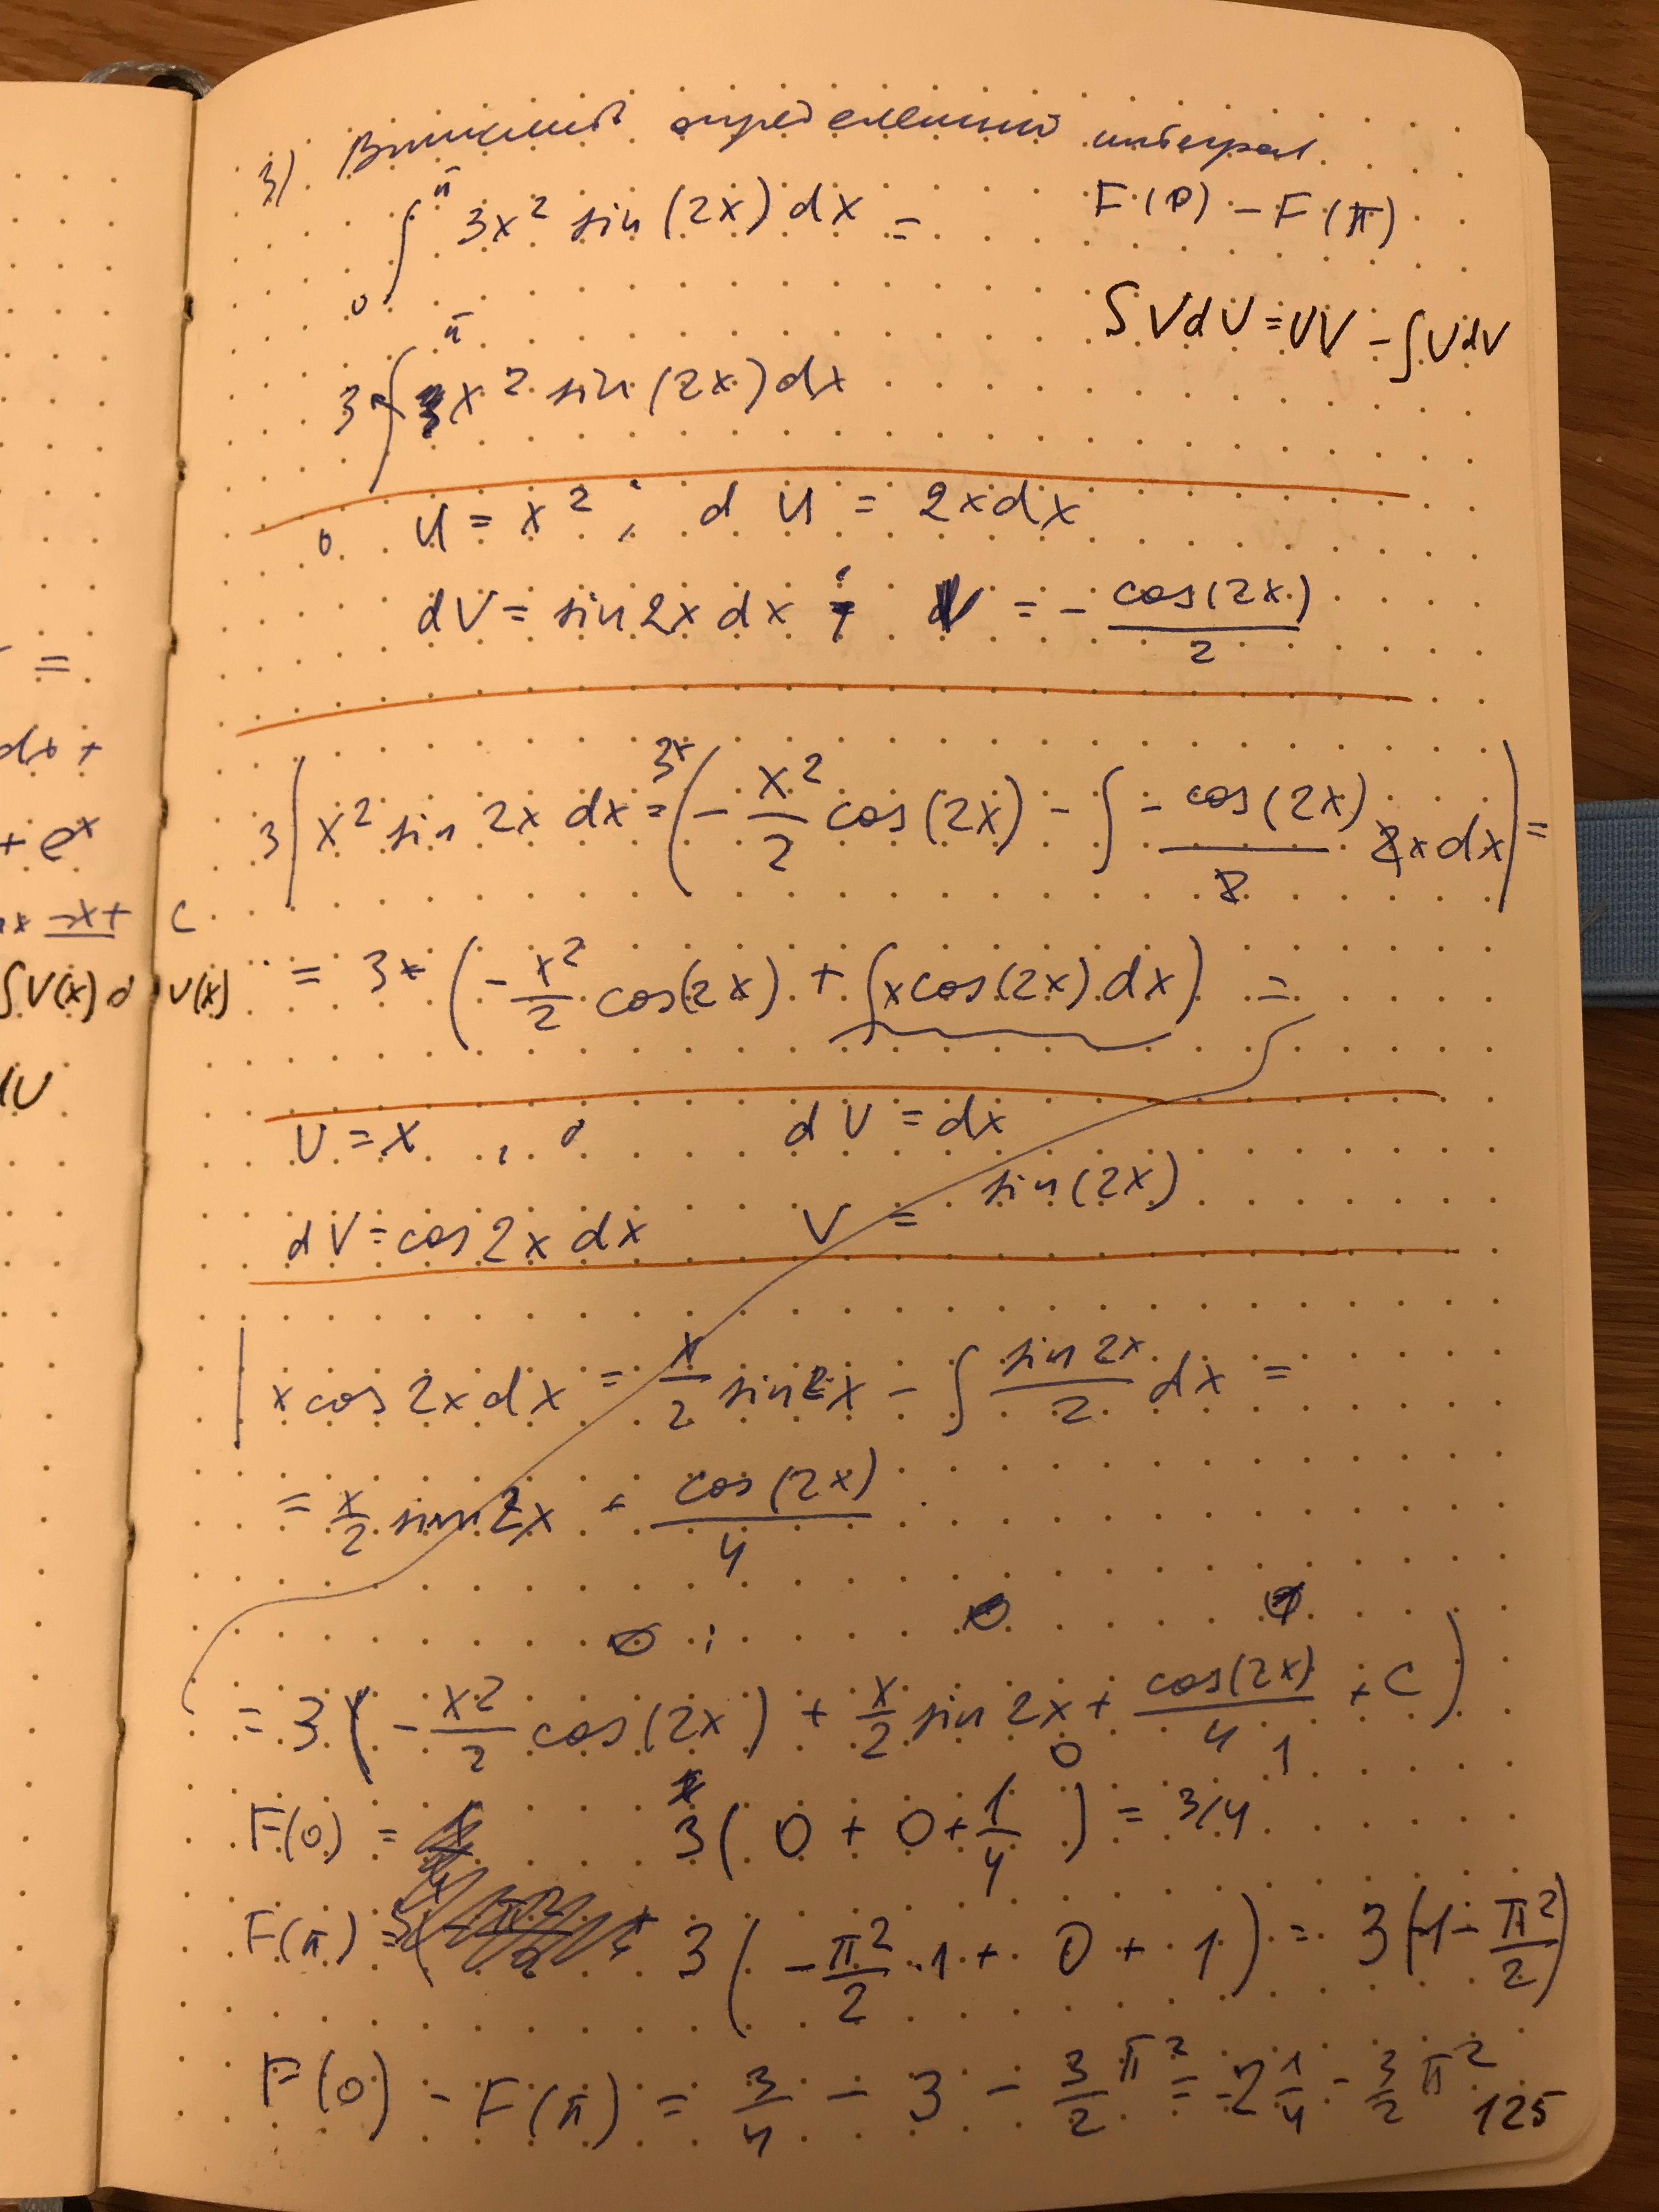 3) Вычислить определенный интеграл.
∫₀^π 3x² sin(2x)dx =
F(0) - F(π)
∫VdU = UV - ∫UdV
3∫₀^π x² sin(2x)dx
U = x²; dU = 2xdx
dV = sin2x dx; V = - cos(2x)/2
3∫x² sin 2x dx = 3*(- x²/2 cos(2x) - ∫ - cos(2x)/2 2x dx) =
= 3*(- x²/2 cos(2x) + ∫x cos(2x) dx) =
U = x, dU = dx
dV = cos2x dx V = sin(2x)
∫x cos 2x dx = x/2 sin2x - ∫ sin 2x/2 dx =
= x/2 sin 2x + cos(2x)/4
= 3(- x²/2 cos(2x) + x/2 sin 2x + cos(2x)/4 + C)
0 1
F(0) = 3(0 + 0 + 1/4) = 3/4
F(π) = 3(- π²/2 · 1 + 0 + 1) = 3(1 - π²/2)
F(0) - F(π) = 3/4 - 3 - 3/2 π² = -2 1/4 - 3/2 π²
125
=
dx +
+ eˣ
x + C
∫V(x) d U(x)
dU